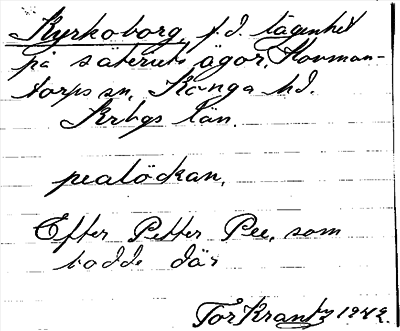 Kyrkoborg, f.d. lägenhet
på säteriets ägor, Hovman-
torps sn, Konga hd.
Krbgs län.
pealöckan,
Efter Petter Pee, som
bodde där
Tor Krantz 1942.